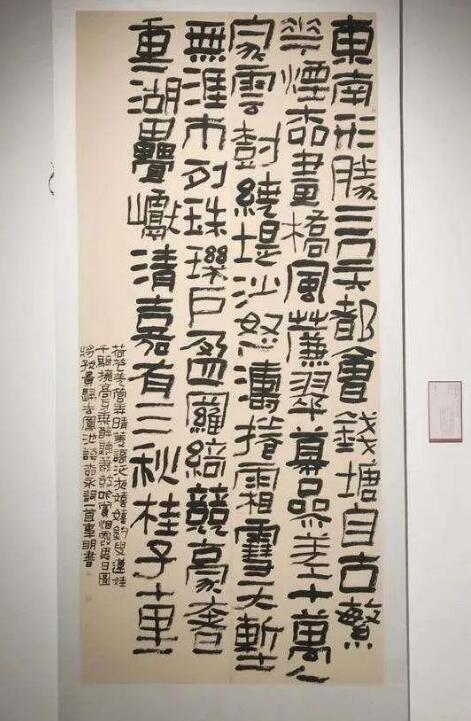 東南形勝三吳都會錢塘自古繁
華煙柳畫橋風簾翠幕參差十萬人
家雲樹繞堤沙怒濤捲霜雪天塹
無涯市列珠璣戶盈羅綺競豪奢
重湖疊巘清嘉有三秋桂子十里
荷花羌管弄晴菱歌泛夜嬉嬉釣叟蓮娃
千騎擁高牙乘醉聽簫鼓吟賞煙霞異日圖
將好景歸去鳳池誇柳永詞一首 明書